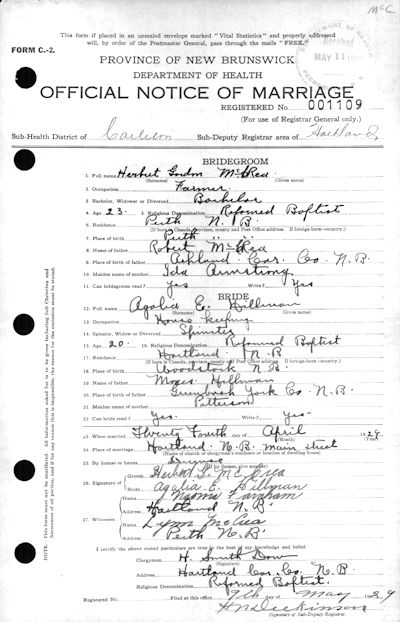 McC
This form if placed in an unsealed envelope marked "Vital Statistics" and properly addressed
will, by order of the Postmaster General, pass through the mails "FREE."
FORM C.-2.
PROVINCE OF NEW BRUNSWICK
DEPARTMENT OF HEALTH
Received
MAY 11
OFFICIAL NOTICE OF MARRIAGE
REGISTERED NO 001109
(For use of Registrar General only.)
Sub-Health District of Carleton Sub-Deputy Registrar area of Hartland
BRIDEGROOM
1. Full name Herbert Gordon McCrea
(Surname) (Given names)
2. Occupation Farmer
3. Bachelor, Widower or Divorced Bachelor
4. Age 23- 5. Religious Denomination Reformed Baptist
6. Residence Perth N. B.
(If born in Canada, province, county and Post Office address. If foreign-born—country.)
7. Place of birth Perth " "
8. Name of father Robert McCrea
9. Place of birth of father Ashland Car. Co. N. B.
10. Maiden name of mother Ida Armstrong
11. Can bridegroom read? yes Write? yes
BRIDE
12. Full name Agalia E. Hillman
(Surname) (Given names)
13. Occupation House keeping
14. Spinster, Widow or Divorced Spinster
15. Age 20. 16. Religious Denomination Reformed Baptist
17. Residence Hartland N. B
18. Place of birth Woodstock N. B.
19. Name of father Moses Hillman
York Co. N. B.
21. Maiden name of mother Patterson
22. Can bride read? Yes. Write? Yes-
23. When married Twenty Fourth day of April 1929
(Month) (Year)
24. Place of marriage Hartland N. B. Main street
(Name of church or clergyman's residence or location of dwelling house)
25. By license or banns License
26. Signature of Herbert G. McCrea
Agalia E. Hillman
Name Naomi Farnham
Address Hartland N. B.
27. Witnesses
Name Lynn McCrea
Address Perth N. B.
I certify the above stated particulars are true to the best of my knowledge and belief.
Clergyman H. Smith Dow
Address Hartland Car. Co. N. B.
Religious Denomination Reformed Baptist.
Registered No. Filed at this office 9th day of May 1929
H N Dickinson
Signature of Sub-Deputy Registrar.